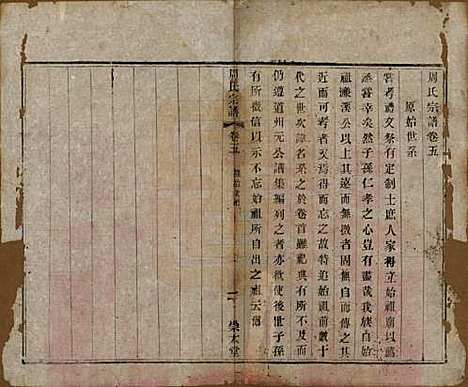 周氏宗譜卷五
原始世系
嘗考禮文祭有定制士庶人家得立始祖廟以蒸
蒸嘗幸矣然子孫仁孝之心豈有盡哉我族自始
祖濂溪公以上其遠而無徵者固無自而傳之其
近而可考者又焉得而忘之故特追始祖前數十
代之世次諱名系之於卷首雖祀典有所不及而
仍遵道州元公譜集編列之者亦欲使後世子孫
有所徵信以示不忘始祖所自出之祖云爾
周氏宗譜
卷五
一
崇本堂